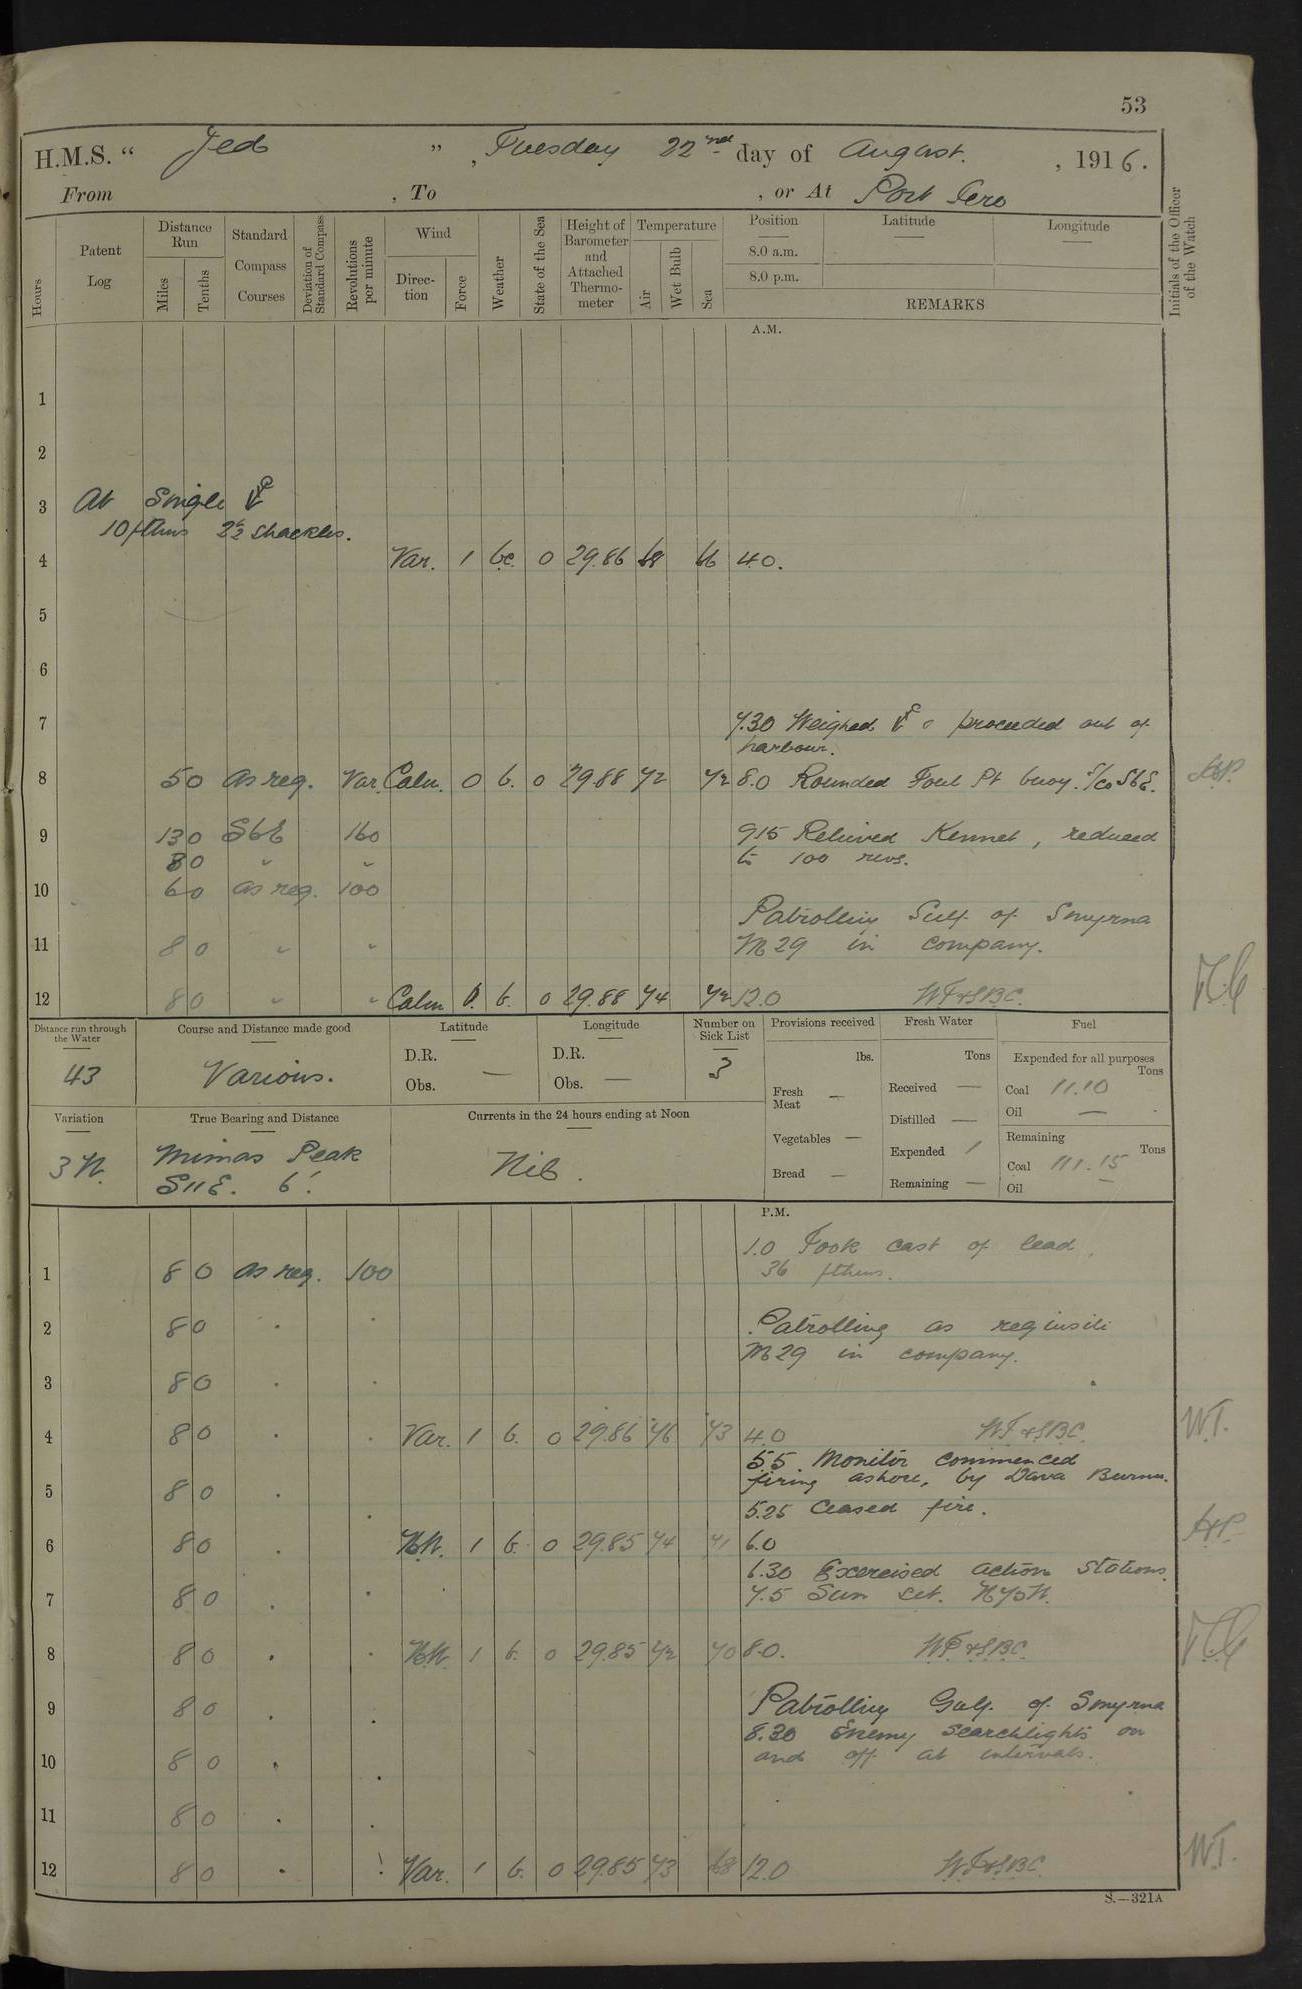 53
H.M.S. “ Jed ” , Tuesday 22nd day of August. , 1916.
From , To , or At Port Iero
Hours
Patent Log
Distance Run
Miles
Tenths
Standard Compass Courses
Deviation of Standard Compass
Revolutions per minute
Wind
Direc-tion
Force
Weather
State of the Sea
Height of Barometer and Attached Thermo-meter
Temperature
Air
Wet Bulb
Sea
Position
8.0 a.m.
8.0 p.m.
Latitude
Longitude
REMARKS
Initials of the Officer of the Watch
A.M.
1
2
3 At Single
10 fthms 2½ shackles.
4 Var. 1 bc. 0 29.86 68 66 4.0.
5
6
7 7.30 Weighed & proceeded out of
harbour.
8 5 0 as req. Var. Calm. 0 b. 0 29.88 72 72 8.0 Rounded Foul Pt buoy. S/Co SbE.
9 13 0 SbE 160 9 15 Relieved Kennet, reduced
8 0 " " to 100 revs.
10 6 0 as req. 100
Patrolling Gulf of Smyrna
11 8 0 " " M29 in company.
12 8 0 " " Calm 0. b. 0 29.88 74 72 12.0 WT&SBC.
Distance run through the Water
43
Course and Distance made good
Various.
Latitude
D.R.
Obs. —
Longitude
D.R.
Obs. —
Number on Sick List
3
Provisions received
lbs.
Fresh Meat —
Vegetables —
Bread —
Fresh Water
Tons
Received —
Distilled —
Expended 1
Remaining —
Fuel
Expended for all purposes
Tons
Coal 11.10
Oil —
Remaining
Tons
Coal 111.15
Oil —
Variation
3 W.
True Bearing and Distance
Mimas Peak
S11E. 6'.
Currents in the 24 hours ending at Noon
Nil.
P.M.
1.0 Took cast of lead,
1 8 0 as req. 100 36 fthms.
2 8 0 . . Patrolling as requisite
M29 in company.
3 8 0 . .
4 8 0 . . Var. 1 b. 0 29.86 76 73 4.0 WT&SBC. W.T.
5.5. Monitor commenced
5 8 0 . . firing ashore, by Dava Burnu.
5.25 Ceased fire.
6 8 0 . NW. 1 b. 0 29.85 74 71 6.0
6.30 Exercised action stations.
7 8 0 . . 7.5 Sun set. N75W.
8 8 0 . . NW. 1 b. 0 29.85 72 70 8.0. WT&SBC.
9 8 0 . . Patrolling Gulf of Smyrna
8.30 Enemy searchlights on
10 8 0 . . and off at intervals.
11 8 0 . .
12 8 0 . . Var. 1 b. 0 29.85 73 68 12.0 WT&SBC. W.T.
S.—321A